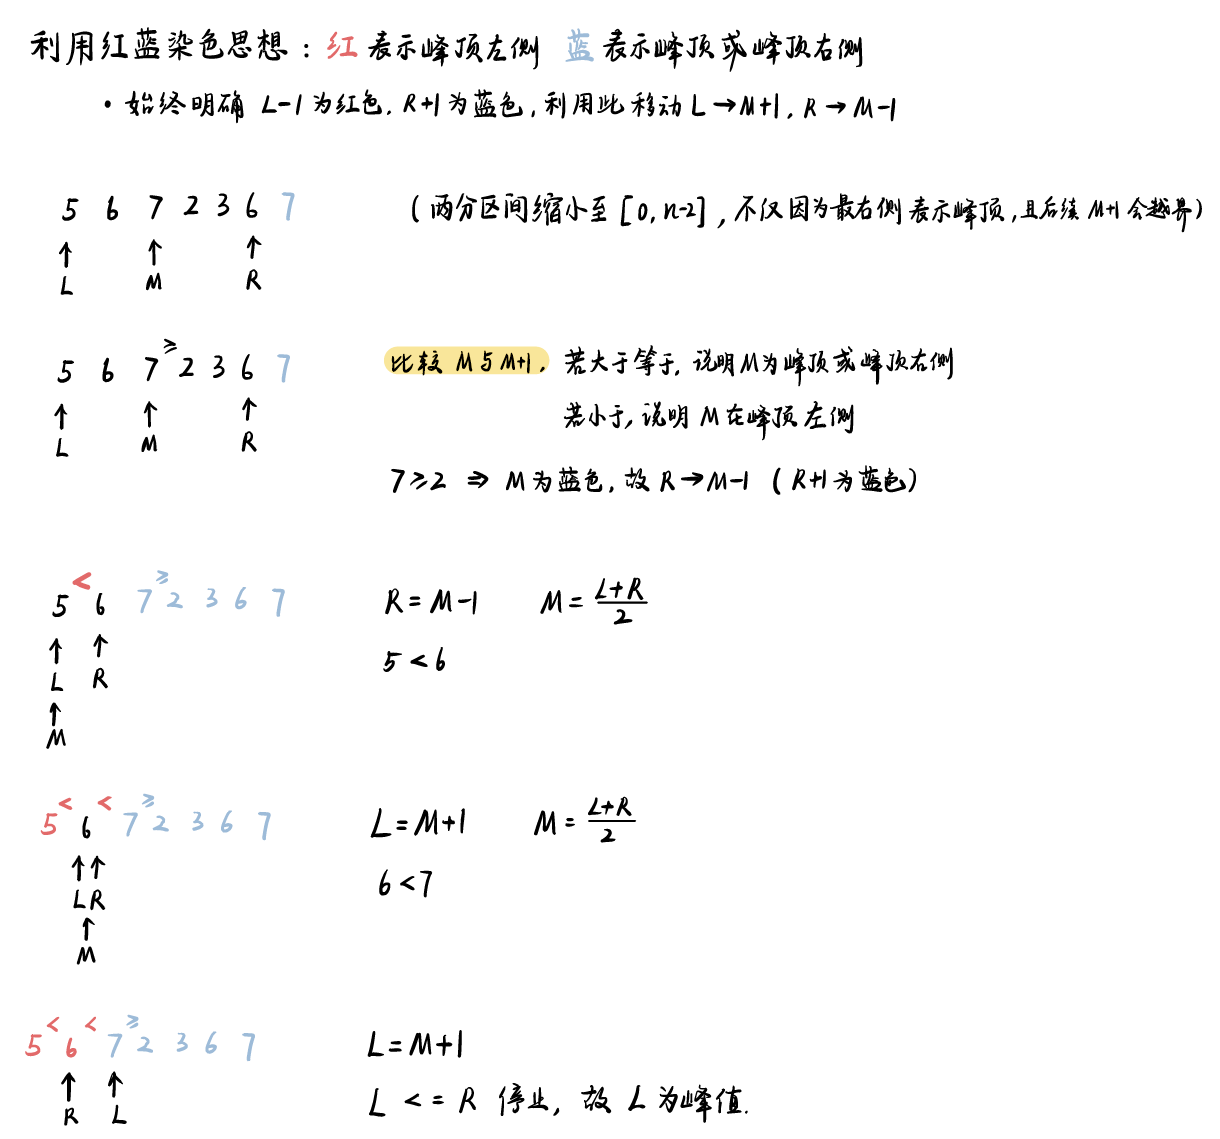 利用红蓝染色思想：红 表示峰顶左侧 蓝 表示峰顶或峰顶右侧
• 始终明确 L-1 为红色, R+1 为蓝色, 利用此移动 L → M+1, R → M-1
5 6 7 2 3 6 7 (两分区间缩小至 [0, n-2], 不仅因为最右侧表示峰顶, 且后续 M+1 会越界)
↑ ↑ ↑
L M R
5 6 7 ≥ 2 3 6 7 比较 M 与 M+1, 若大于等于, 说明 M 为峰顶或峰顶右侧
↑ ↑ ↑ 若小于, 说明 M 在峰顶左侧
L M R
7 ≥ 2 ⇒ M 为蓝色, 故 R → M-1 (R+1 为蓝色)
5 < 6 7 ≥ 2 3 6 7 R = M-1 M = L+R / 2
↑ ↑ 5 < 6
L R
↑
M
5 < 6 < 7 ≥ 2 3 6 7 L = M+1 M = L+R / 2
↑ ↑ 6 < 7
L R
↑
M
5 < 6 < 7 ≥ 2 3 6 7 L = M+1
↑ ↑ L <= R 停止, 故 L 为峰值.
R L